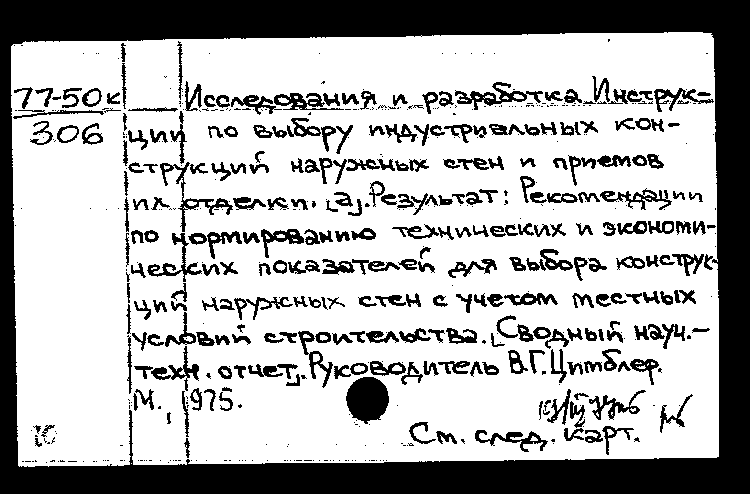 77-50к Исследования и разработка Инструк-
306 ции по выбору индустриальных кон-
струкций наружных стен и приемов
их отделки. [а]. Результат: Рекомендации
по нормированию технических и экономи-
ческих показателей для выбора конструк-
ций наружных стен с учетом местных
условий строительства. [Сводный науч.-
техн. отчет]. Руководитель В.Г. Цимблер.
М., 1975.
См. след. карт.